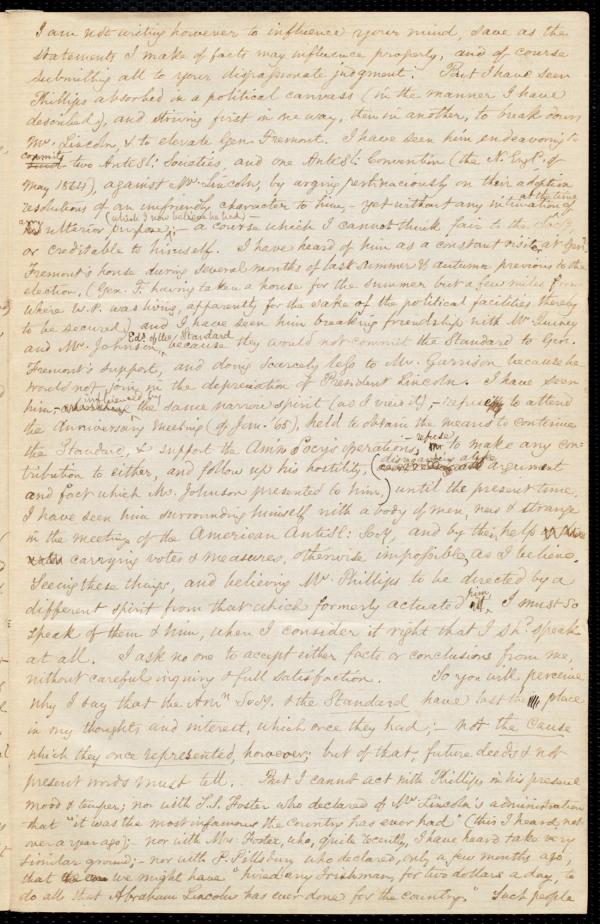 I am not writing however to influence your mind, save as the
statements I make of facts may influence properly, and of course
submitting all to your dispassionate judgment. But I have seen
Phillips absorbed in a political canvass (in the manner I have
described), and striving first in one way, then in another, to break down
Mr. Lincoln, & to elevate Gen. Fremont. I have seen him endeavoring to
commit
two AntiSl: Societies, and one AntiSl: Convention (the N. Engd. of
May 1864), against Mr. Lincoln, by urging pertinaciously on their adoption
resolutions of an unfriendly character to him, - yet without any intimation at the time of
any ulterior purpose, (which I now believe he had) - a course which I cannot think fair to the Socy.
or creditable to himself. I have heard of him as a constant visitor at Genl.
Fremont's house during several months of last summer & autumn previous to the
election, (Gen. F. having taken a house for the summer but a few miles from
where W.P. was living, apparently for the sake of the political facilities thereby
to be secured) and I have seen him breaking friendship with Mr. Quincy
and Mr. Johnson, Eds. of the Standard, because they would not commit the Standard to Gen.
Fremont's support, and doing scarcely less to Mr. Garrison because he
would not join in the depreciation of President Lincoln. I have seen
him, influenced by the same narrow spirit (as I view it), - refuse to attend
the Anniversary meeting (of Jan. '65), held to obtain the means to continue
the Standard, & support the Amn. Socy's operations, - refuse to make any con-
tribution to either, and follow up his hostility, (disregarding alike argument
and fact which Mr. Johnson presented to him,) until the present time.
I have seen him surrounding himself with a body of men, new & strange
in the meetings of the American AntiSl: Socy, and by their help
carrying votes & measures, otherwise impossible, as I believe.
Seeing these things, and believing Mr. Phillips to be directed by a
different spirit from that which formerly actuated him, I must so
speak of them & him, when I consider it right that I shd. speak
at all. I ask no one to accept either facts or conclusions from me,
without careful inquiry & full satisfaction. So you will perceive
why I say that the Amn. Socy. & the Standard have lost the place
in my thoughts and interest, which once they had; - not the cause
which they once represented, however; but of that, future deeds & not
present words must tell. . But I cannot act with Phillips in his present
mood & temper; nor with S.S. Foster who declared of Mr. Lincoln's administration
that "it was the most infamous the Country has ever had" (this I heard, not
over a year ago); - nor with Mrs. Foster, who, quite recently, I have heard take very
similar ground; - nor with P. Pillsbury who declared, only a few months ago,
that we might have "hired any Irishman, for two dollars a day, to
do all that Abraham Lincoln has ever done for the country." Such people